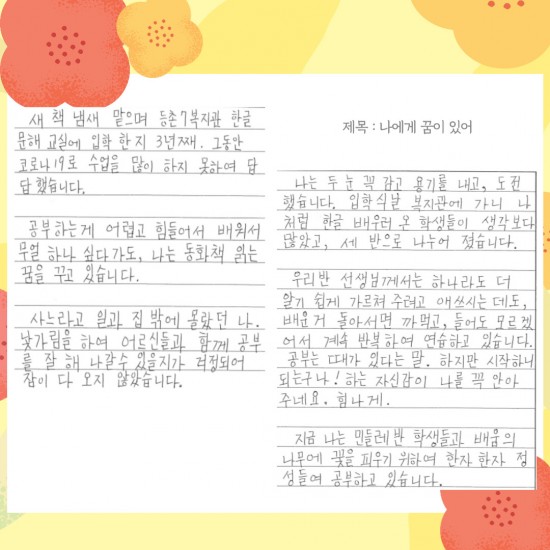 새 책 냄새 맡으며 등촌7복지관 한글
문해 교실에 입학 한지 3년째. 그동안
코로나19로 수업을 많이 하지 못하여 답
답했습니다.
공부하는게 어렵고 힘들어서 배워서
무얼 하나 싶다가도, 나는 동화책 읽는
꿈을 꾸고 있습니다.
사느라고 일과 집 밖에 몰랐던 나.
낯가림을 하여 어르신들과 함께 공부
를 잘 해 나갈수 있을지가 걱정되어
잠이 다 오지 않았습니다.
제목 : 나에게 꿈이 있어
나는 두 눈 꼭 감고 용기를 내고, 도전
했습니다. 입학식날 복지관에 가니 나
처럼 한글 배우러 온 학생들이 생각보다
많았고, 세 반으로 나누어 졌습니다.
우리반 선생님께서는 하나라도 더
알기 쉽게 가르쳐 주려고 애쓰시는 데도,
배운거 돌아서면 까먹고, 들어도 모르겠
어서 계속 반복하여 연습하고 있습니다.
공부는 때가 있다는 말. 하지만 시작하니
되는구나! 하는 자신감이 나를 꼭 안아
주네요. 힘나게.
지금 나는 민들레반 학생들과 배움의
나무에 꽃을 피우기 위하여 한자 한자 정
성들여 공부하고 있습니다.